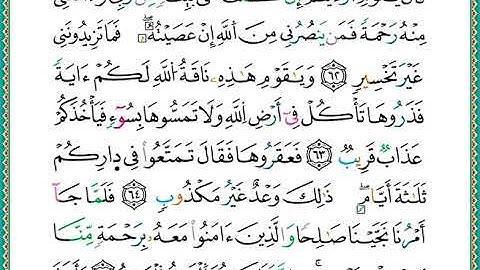 مِنْهُ رَحْمَةً فَمَنْ يَنصُرُنِي مِنَ اَللَّهِ إِنْ عَصَيْتُهُۥ فَمَا تَزِيدُونَنِي
غَيْرَ تَخْسِيرٍ ٦٢ وَيَٰقَوْمِ هَٰذِهِۦ نَاقَةُ اُللَّهِ لَكُمْ ءَايَةً
فَذَرُوهَا تَأْكُلْ فِىٓ أَرْضِ اِللَّهِ وَلَا تَمَسُّوهَا بِسُوٓءٍ فَيَأْخُذَكُمْ
عَذَابٌ قَرِيبٌ ٦٣ فَعَقَرُوهَا فَقَالَ تَمَتَّعُوا۟ فِى دِارِكُمْ
ثَلَٰثَةَ أَيَّامٍ ذَٰلِكَ وَعْدٌ غَيْرُ مَكْذُوبٍ ٦٤ فَلَمَّا جَآ
أَمْرُنَا نَجَّيْنَا صَٰلِحًا وَالَّذِينَ ءَامَنُوا۟ مَعَهُۥ بِرَحْمَةٍ مِّنَّا